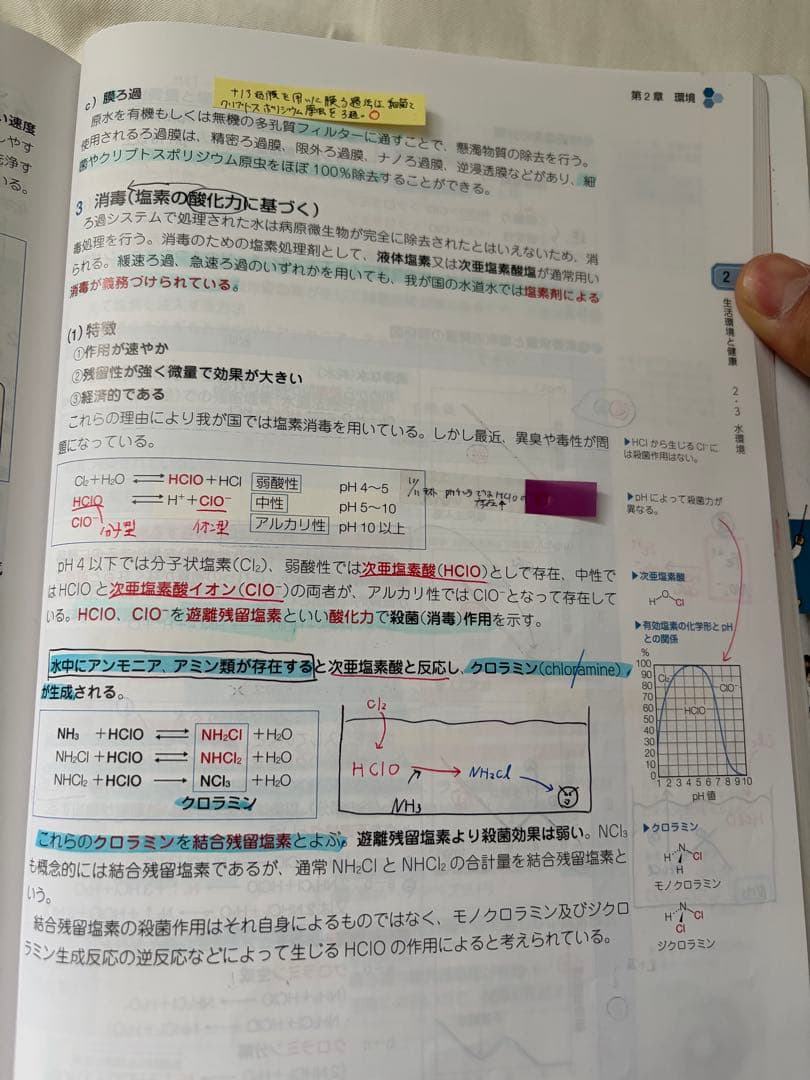 第2章 環境
c）膜ろ過
ナノろ過膜を用いた膜ろ過法は、細菌と
クリプトスポリジウム原虫をろ過。○
原水を有機もしくは無機の多孔質フィルターに通すことで、懸濁物質の除去を行う。
使用されるろ過膜は、精密ろ過膜、限外ろ過膜、ナノろ過膜、逆浸透膜などがあり、細
菌やクリプトスポリジウム原虫をほぼ100％除去することができる。
3 消毒（塩素の酸化力に基づく）
ろ過システムで処理された水は病原微生物が完全に除去されたとはいえないため、消
毒処理を行う。消毒のための塩素処理剤として、液体塩素又は次亜塩素酸塩が通常用い
られる。緩速ろ過、急速ろ過のいずれかを用いても、我が国の水道水では塩素剤による
消毒が義務づけられている。
(1) 特徴
①作用が速やか
②残留性が強く微量で効果が大きい
③経済的である
これらの理由により我が国では塩素消毒を用いている。しかし最近、異臭や毒性が問
題になっている。
Cl₂＋H₂O ⇄ HClO＋HCl 弱酸性 pH 4〜5
HClO ⇄ H⁺＋ClO⁻ 中性 pH 5〜10
ClO⁻ アルカリ性 pH 10 以上
分子型 イオン型
pH 4 以下では分子状塩素（Cl₂）、弱酸性では次亜塩素酸（HClO）として存在、中性で
はHClO と次亜塩素酸イオン（ClO⁻）の両者が、アルカリ性では ClO⁻となって存在して
いる。HClO、ClO⁻を遊離残留塩素といい酸化力で殺菌（消毒）作用を示す。
水中にアンモニア、アミン類が存在すると次亜塩素酸と反応し、クロラミン（chloramine）
が生成される。
NH₃ ＋HClO ⇄ NH₂Cl ＋H₂O
NH₂Cl＋HClO ⇄ NHCl₂ ＋H₂O
NHCl₂＋HClO → NCl₃ ＋H₂O
クロラミン
Cl₂
HClO → NH₂Cl
NH₃
これらのクロラミンを結合残留塩素とよぶ。遊離残留塩素より殺菌効果は弱い。NCl₃
も概念的には結合残留塩素であるが、通常 NH₂Cl と NHCl₂ の合計量を結合残留塩素と
いう。
結合残留塩素の殺菌作用はそれ自身によるものではなく、モノクロラミン及びジクロ
ラミン生成反応の逆反応などによって生じる HClO の作用によると考えられている。
2
生活環境と健康
2・3 水環境
▶HCl から生じる Cl⁻に
は殺菌作用はない。
▶pHによって殺菌力が
異なる。
▶次亜塩素酸
H O Cl
▶有効塩素の化学形と pH
との関係
%
100
90
80
70
60
50
40
30
20
10
0
Cl₂ HClO ClO⁻
1 2 3 4 5 6 7 8 9 10
pH 値
▶クロラミン
H N Cl
H
モノクロラミン
H N Cl
Cl
ジクロラミン
い速度